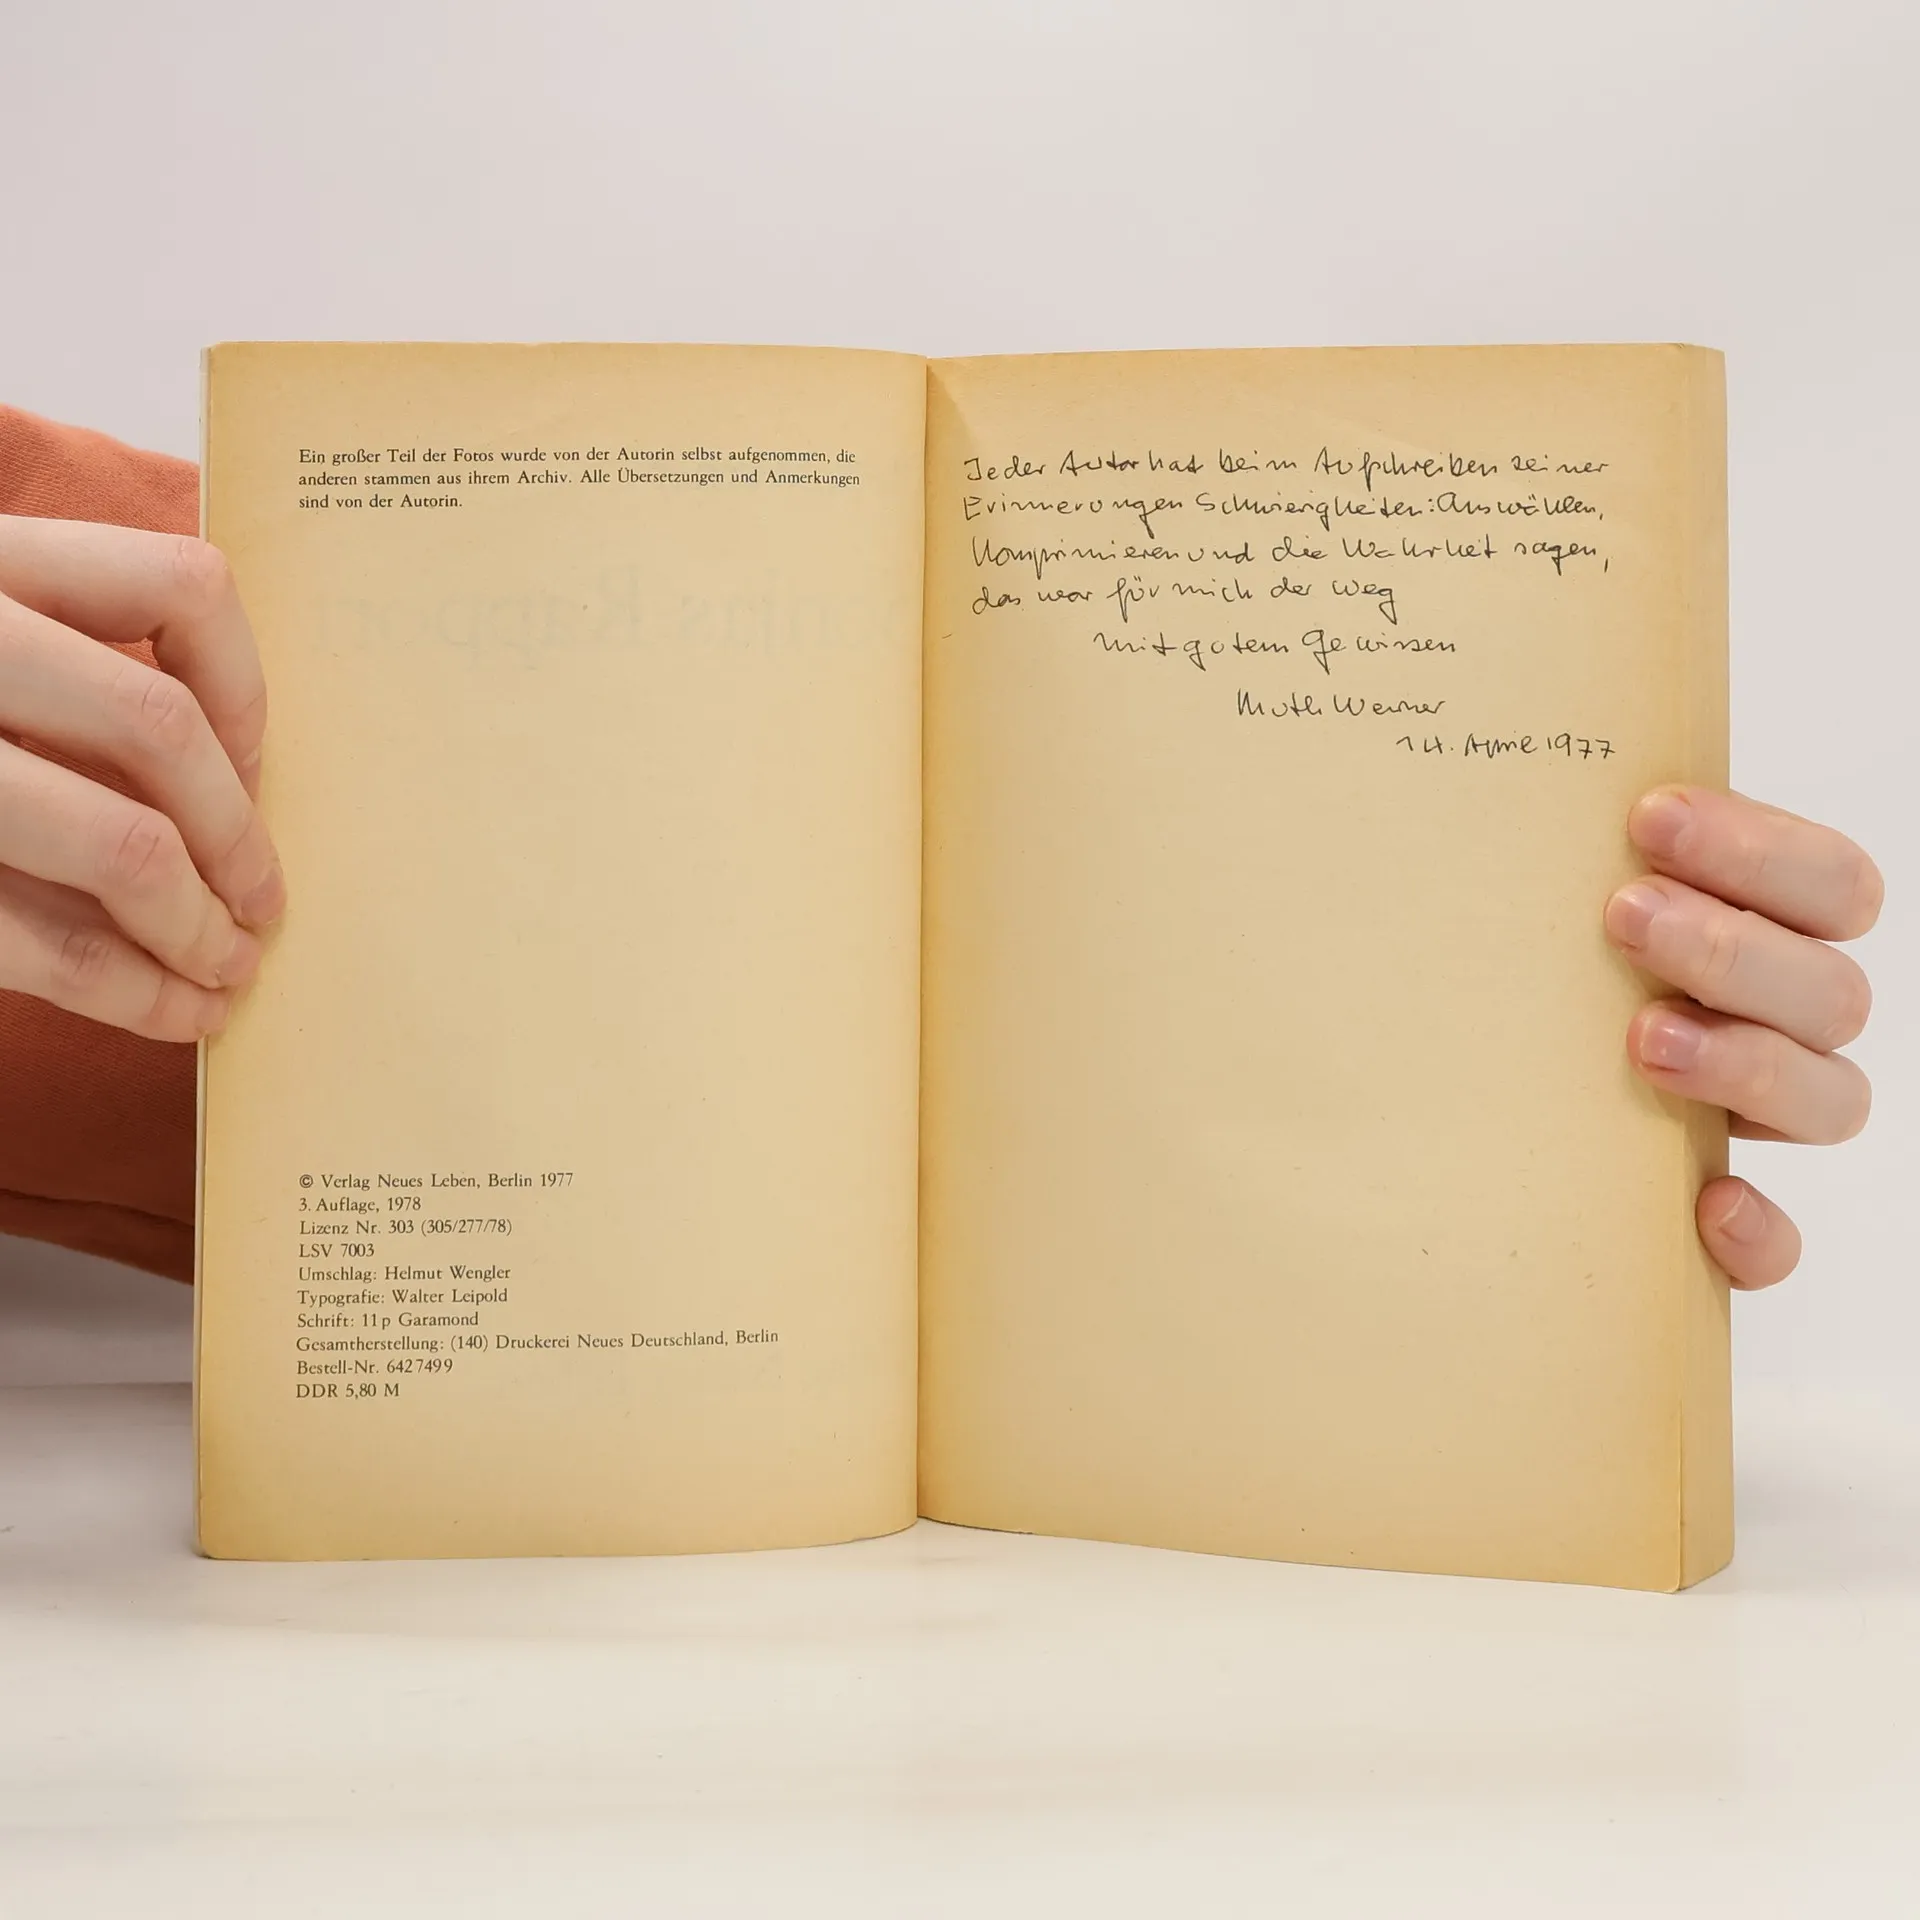 Ein großer Teil der Fotos wurde von der Autorin selbst aufgenommen, die
anderen stammen aus ihrem Archiv. Alle Übersetzungen und Anmerkungen
sind von der Autorin.
© Verlag Neues Leben, Berlin 1977
3. Auflage, 1978
Lizenz Nr. 303 (305/277/78)
LSV 7003
Umschlag: Helmut Wengler
Typografie: Walter Leipold
Schrift: 11p Garamond
Gesamtherstellung: (140) Druckerei Neues Deutschland, Berlin
Bestell-Nr. 6427499
DDR 5,80 M
Jeder Autor hat beim Aufschreiben seiner
Erinnerungen Schwierigkeiten: Auswählen,
Komprimieren und die Wahrheit sagen,
das war für mich der Weg
Mit gutem Gewissen
Ruth Werner
14. April 1977